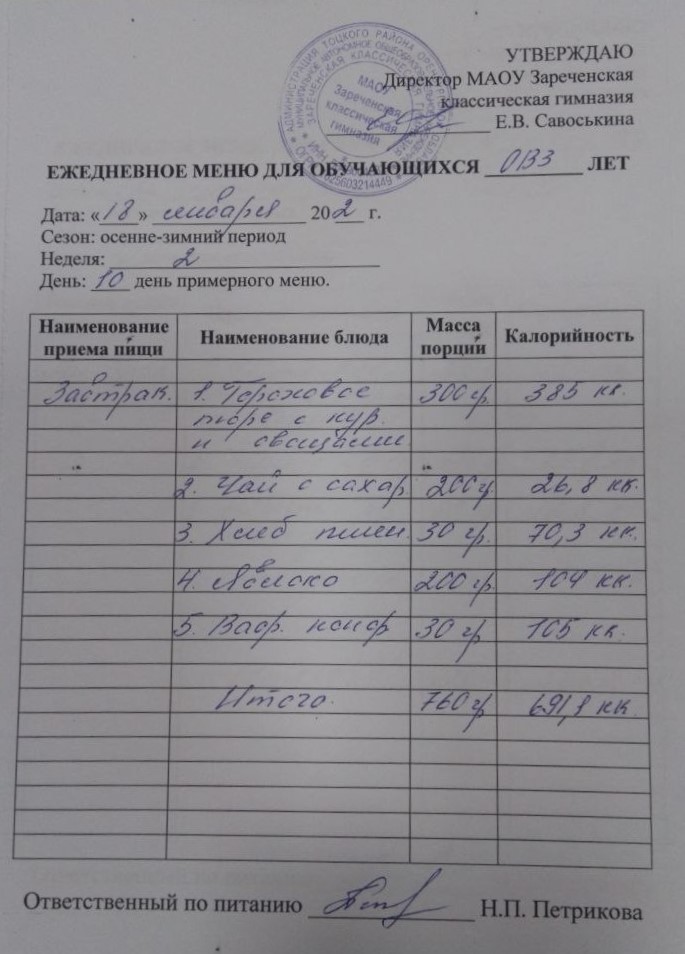 УТВЕРЖДАЮ
Директор МАОУ Зареченская
классическая гимназия
Е.В. Савоськина
АДМИНИСТРАЦИЯ ТОЦКОГО РАЙОНА
ЗАРЕЧЕНСКАЯ КЛАССИЧЕСКАЯ ГИМНАЗИЯ
МАОУ
Зареченская
классическая
гимназия
ЕЖЕДНЕВНОЕ МЕНЮ ДЛЯ ОБУЧАЮЩИХСЯ ОВЗ ЛЕТ
Дата: «18» января 202 г.
Сезон: осенне-зимний период
Неделя: 2
День: 10 день примерного меню.
Наименование приема пищи Наименование блюда Масса порций Калорийность
Завтрак. 1. Гороховое 300 гр. 385 кк.
пюре с кур.
и овощами.
2. Чай с сахар 200 гр 26,8 кк.
3. Хлеб пшен. 30 гр. 70,3 кк.
4. Яблоко 200 гр. 104 кк.
5. Ваф. конф 30 гр 105 кк.
Итого. 760 гр 691,1 кк.
Ответственный по питанию Н.П. Петрикова